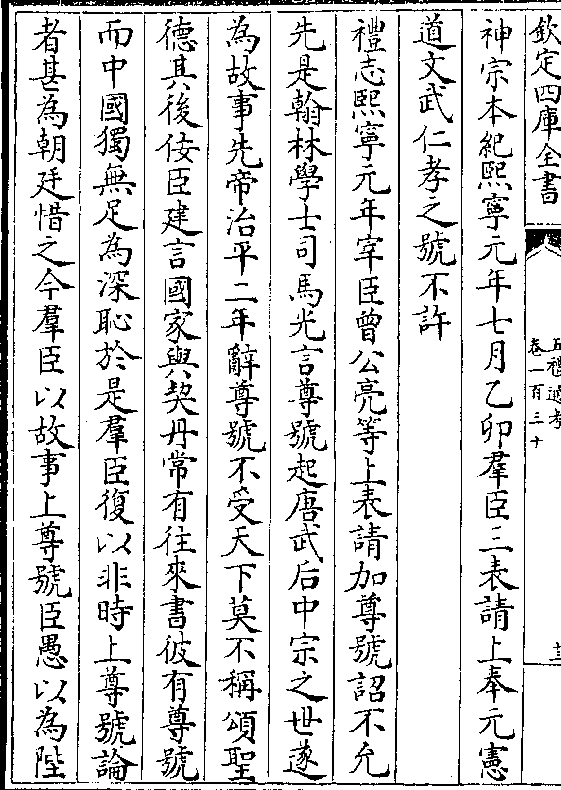 欽定四庫全書
五禮通考
卷一百三十
神宗本紀熙寧元年七月乙卯羣臣三表請上奉元憲
道文武仁孝之號不許
禮志熙寧元年宰臣曾公亮等上表請加尊號詔不允
先是翰林學士司馬光言尊號起唐武后中宗之世遂
為故事先帝治平二年辭尊號不受天下莫不稱頌聖
德其後佞臣建言國家與契丹常有往來書彼有尊號
而中國獨無足為深恥於是羣臣復以非時上尊號論
者甚為朝廷惜之今羣臣以故事上尊號臣愚以為陛